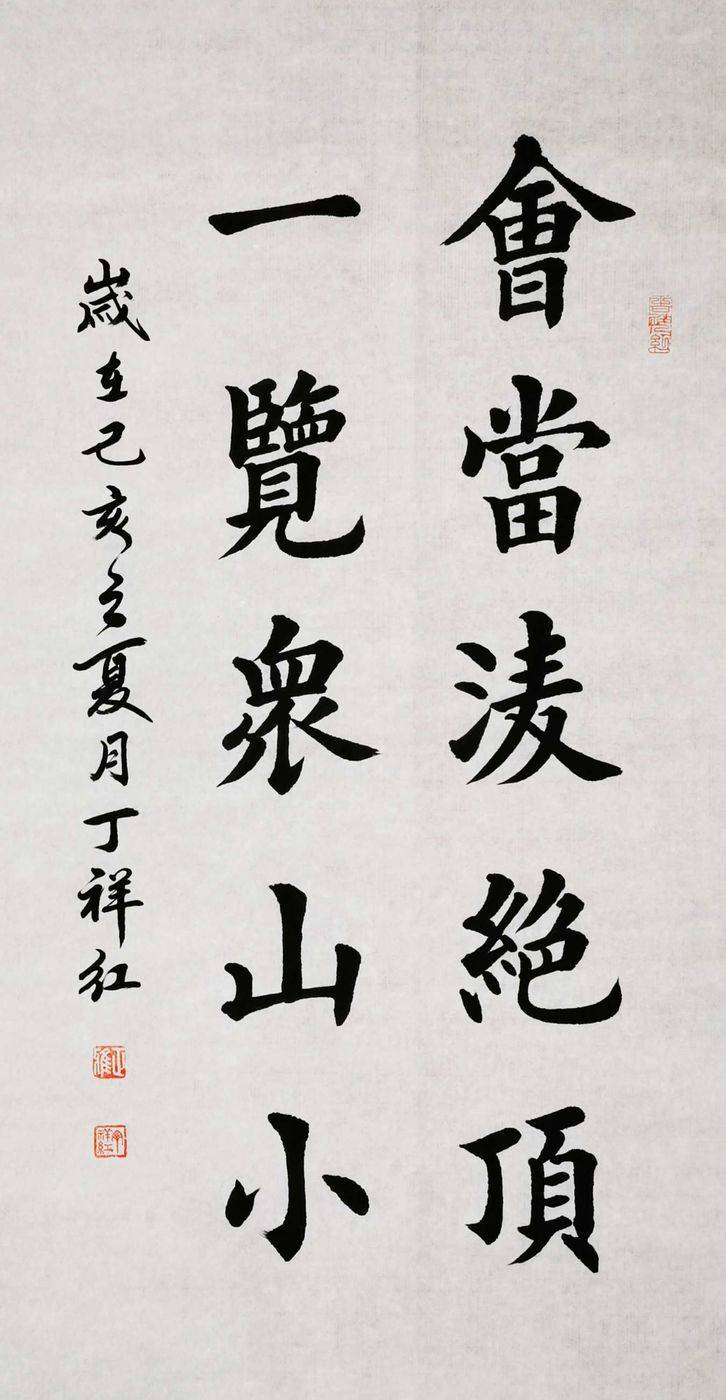 會當淩絕頂
一覽眾山小
歲在己亥之夏月丁祥红